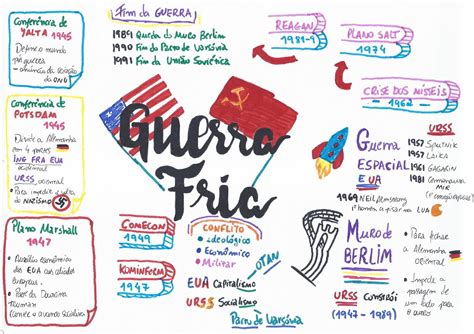 Conferência de
YALTA 1945
Define o mundo
pós guerra
criação da
ONU
Conferência de
POTSDAM
1945
Divide a Alemanha
em 4 partes
ING FRA EUA
ocidental
URSS oriental
NAZISMO
Plano Marshall
1947
Auxílio econômico
dos EUA aos aliados
europeus.
Truman
Fim da GUERRA!
1989 Queda do Muro Berlim
1990 Fim do Pacto de Varsóvia
1991 Fim da União Soviética
REAGAN
1981-9
PLANO SALT
1974
CRISE DOS MÍSSEIS
1962
Guerra
Fria
Guerra
ESPACIAL
EUA
1969 NEIL Armstrong
1º homem a pisar na LUA
URSS
1957 Sputnik
1957 Laika
1961 GAGARIN
1981
MIR
COMECON
1949
KOMINFORM
1947
CONFLITO
Ideológico
Econômico
Militar
OTAN
EUA Capitalismo
URSS Socialismo
Pacto de Varsóvia
Muro de
BERLIM
URSS constrói
Para fechar
a Alemanha
oriental
Impede a
passagem
de um lado
para o outro